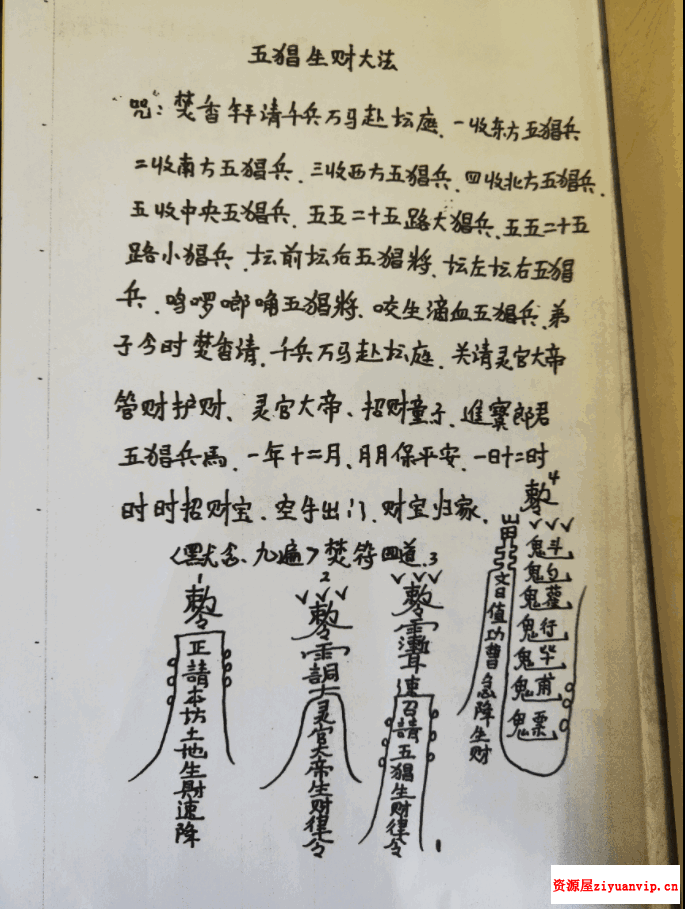 五猖生财大法
咒：焚香年手请千兵万马赴坛庭、一收东方五猖兵
二收南方五猖兵、三收西方五猖兵、四收北方五猖兵、
五收中央五猖兵、五五二十五路大猖兵、五五二十五
路小猖兵、坛前坛后五猖將、坛左坛右五猖
兵、呜啰啷唃五猖將、咬生滴血五猖兵、弟
子今时焚香请、千兵万马赴坛庭、关请灵官大帝
管财护财、灵官大帝、招财童子、進寳郎君
五猖兵馬、一年十二月、月月保平安、一日十二时
时时招财宝、空手出门、财宝归家、
〈默念、九遍〉焚符四道、
1
敕令
正請本坊土地生財速降
2
敕令
灵官大帝生财律令
3
敕令
速召請五猖生财律令
4
敕令
日值功曹急降生财
鬼斗
鬼勺
鬼雚
鬼行
鬼毕
鬼甫
鬼票
1
资源屋ziyuanvip.cn